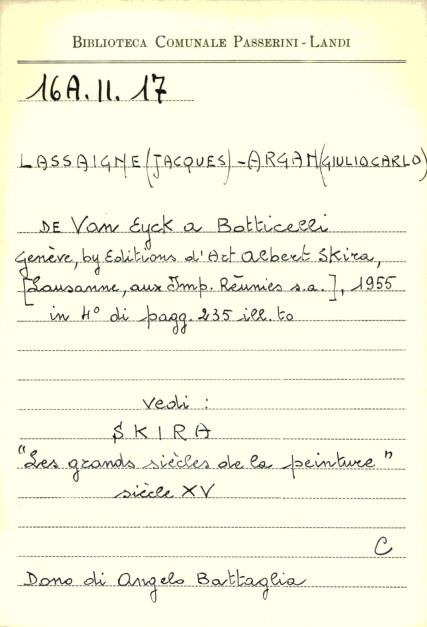 BIBLIOTECA COMUNALE PASSERINI - LANDI
16A.II.17
LASSAIGNE (JACQUES) - ARGAN (GIULIOCARLO)
DE Van Eyck a Botticelli
Genève, by Editions d'Art Albert Skira,
[Lausanne, aux Imp. Réunies s.a.], 1955
in 4° di pagg. 235 ill.to
vedi :
SKIRA
"Les grands siècles de la peinture"
siècle XV
C
Dono di Angelo Battaglia